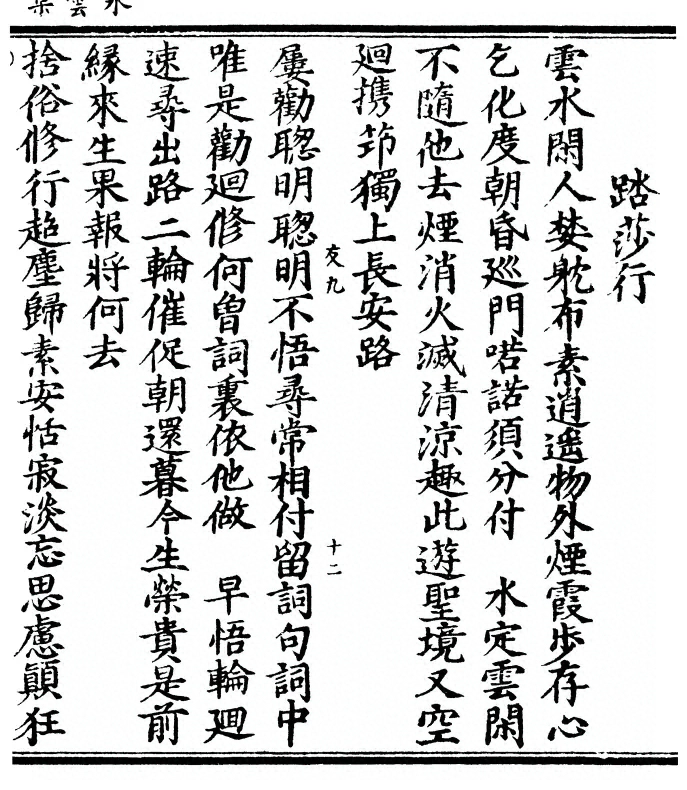 踏莎行
雲水閑人婪躭布素逍遥物外煙霞步存心
乞化度朝昏廵門喏諾須分付　水定雲閑
不隨他去煙消火滅清涼趣此遊聖境又空
廻携笻獨上長安路
屢勸聦明聦明不悟尋常相付留詞句詞中
唯是勸廻修何曾詞裏依他做　早悟輪廻
速尋出路二輪催促朝還暮今生榮貴是前
緣來生果報將何去
捨俗修行趂塵歸素安恬寂淡忘思慮顛狂
友九
十二